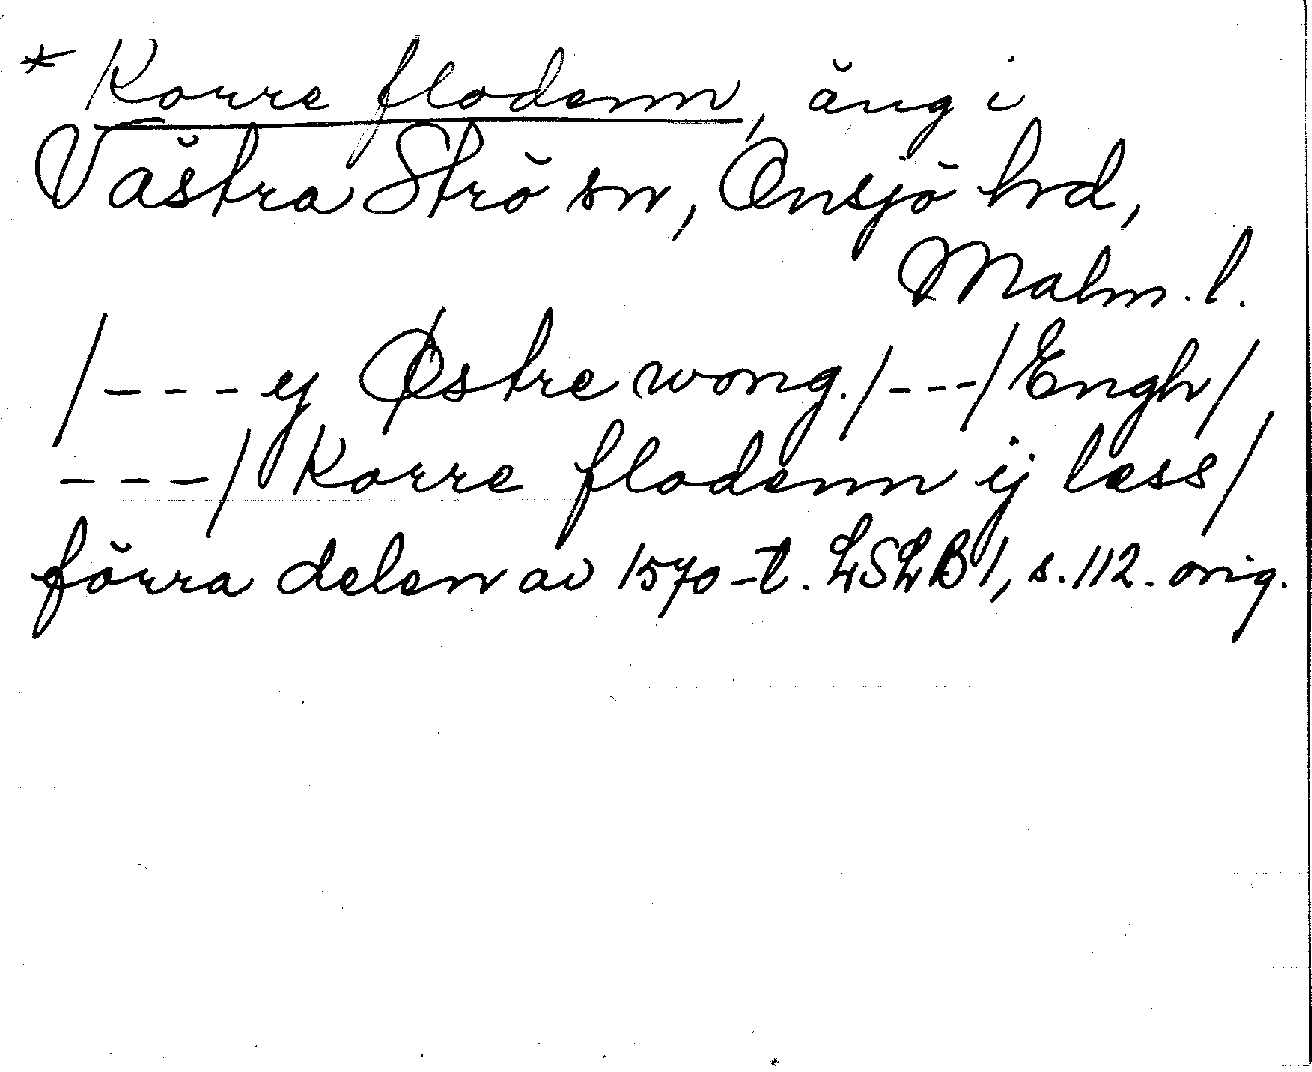 * Korre flodenn, äng i
Västra Strö sn, Onsjö hd,
Malm. l.
/--- ij Østre wong./---/Engh/
---/ Korre flodenn ij læss/
förra delen av 1570-t. LSLB 1, s. 112. orig.